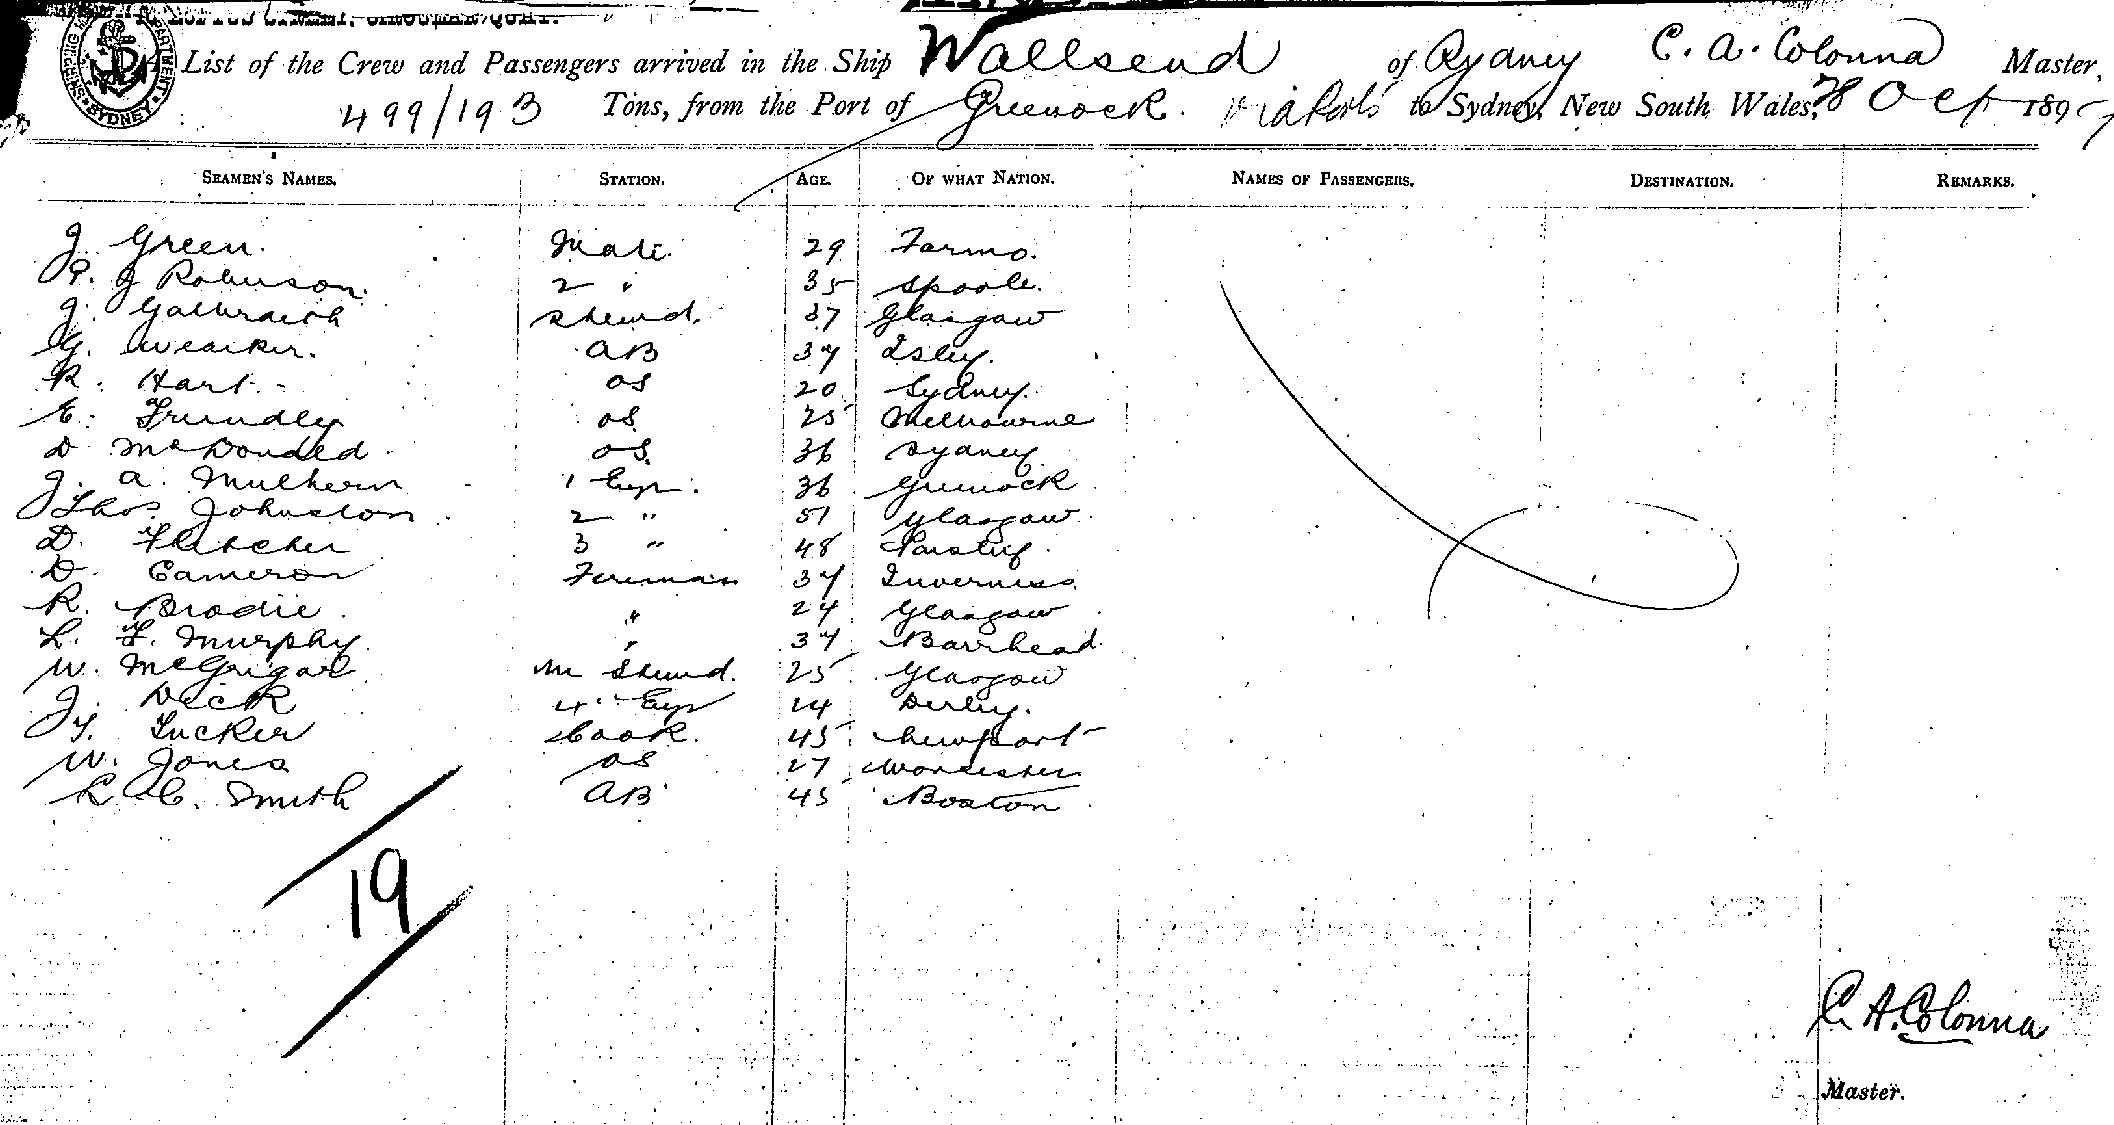 SHIPPING MASTER'S DEPARTMENT SYDNEY
A List of the Crew and Passengers arrived in the Ship Wallsend of Sydney C. A. Colonna Master,
499/193 Tons, from the Port of Greenock via Ports to Sydney, New South Wales, 28 Oct 1897
SEAMEN'S NAMES. STATION. AGE. OF WHAT NATION. NAMES OF PASSENGERS. DESTINATION. REMARKS.
J. Green. Mate. 29 Farmo.
R. J Robinson. 2 " 35 Spoole.
J. Galbraith Steward. 37 Glasgow
G. Weaker. AB 37 Isley.
R. Hart. OS 20 Sydney.
E. Grundley OS 25 Melbourne
D McDonald OS. 36 Sydney
J. A. Mulhern 1 Engr. 36 Greenock
Thos Johnston 2 " 51 Glasgow
D. Fletcher 3 " 48 Paisley
D. Cameron Fireman 37 Inverness
R. Brodie " 24 Glasgow
L. F. Murphy " 37 Barrhead
W. McGrigor M Steward. 25 Glasgow
J. Dick 4 Engr 24 Derby.
J. Tucker Cook. 45 Newport
W. Jones OS 27 Worcester
R C. Smith AB 45 Boston
19
C. A. Colonna
Master.